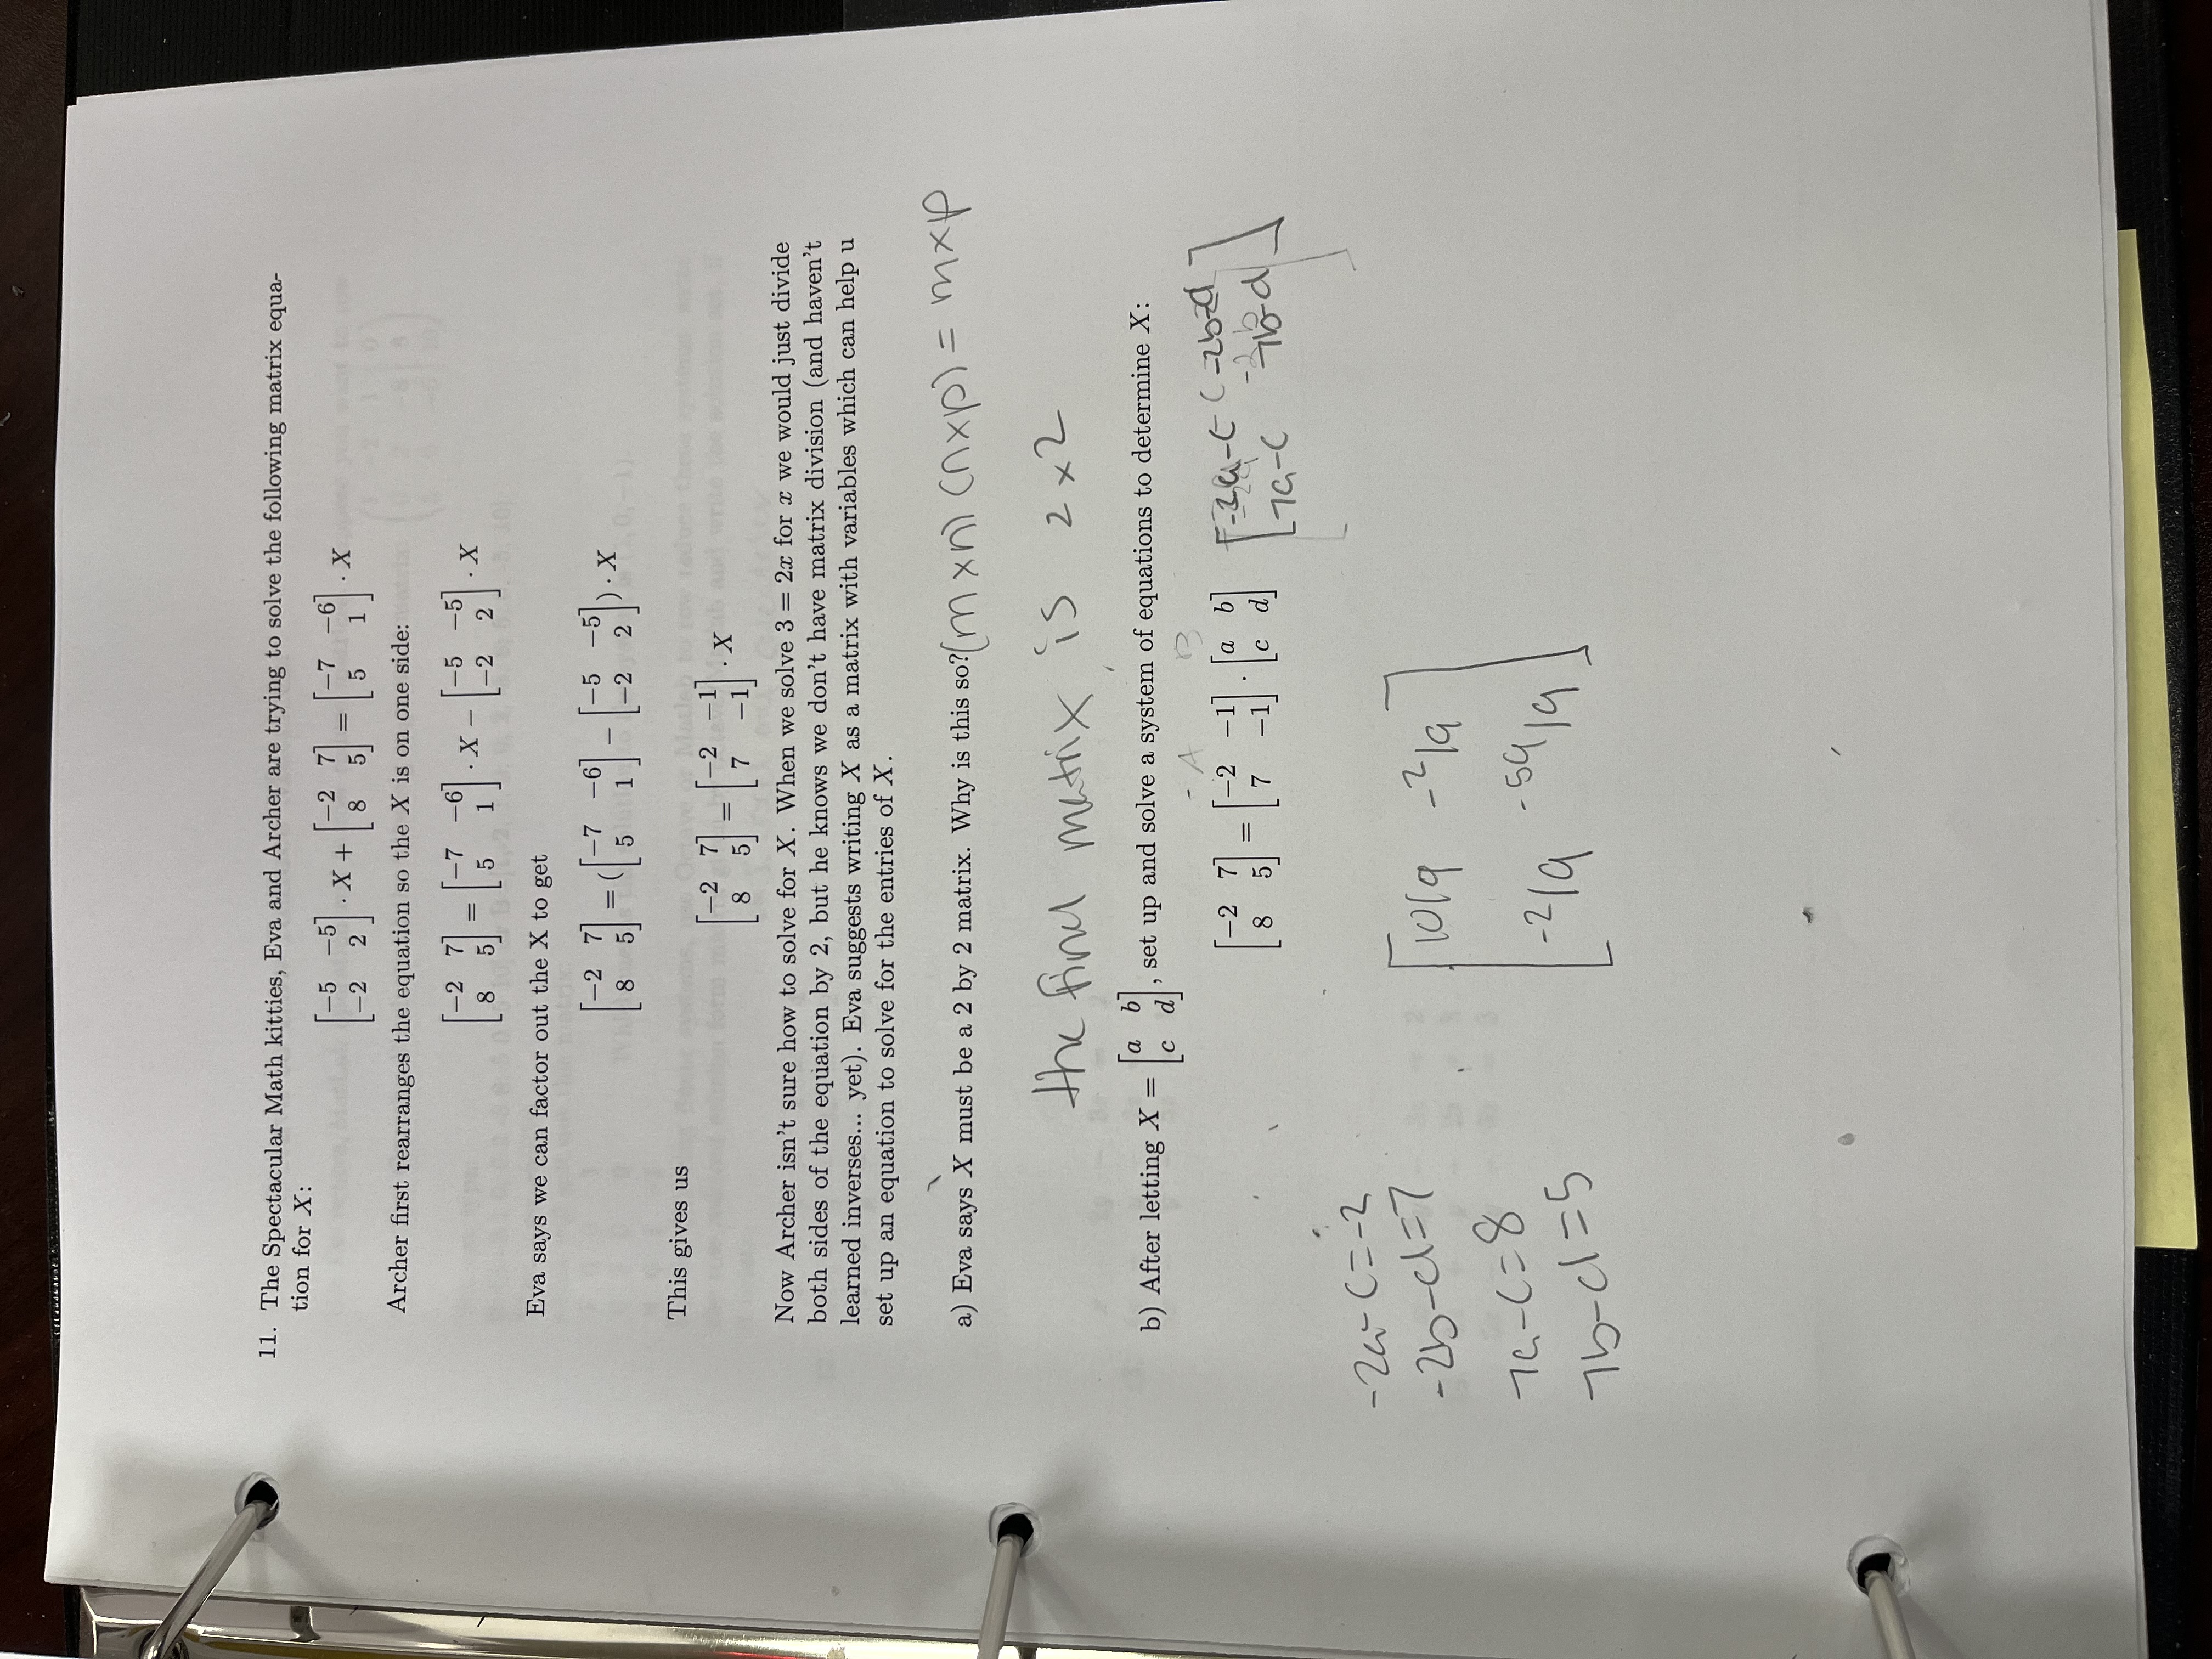 11. The Spectacular Math kitties, Eva and Archer are trying to solve the following matrix equa-
tion for X:
[−5 −5; −2 2] · X + [−2 7; 8 5] = [−7 −6; 5 1] · X
Archer first rearranges the equation so the X is on one side:
[−2 7; 8 5] = [−7 −6; 5 1] · X − [−5 −5; −2 2] · X
Eva says we can factor out the X to get
[−2 7; 8 5] = ([−7 −6; 5 1] − [−5 −5; −2 2]) · X
This gives us
[−2 7; 8 5] = [−2 −1; 7 −1] · X
Now Archer isn't sure how to solve for X. When we solve 3 = 2x for x we would just divide
both sides of the equation by 2, but he knows we don't have matrix division (and haven't
learned inverses... yet). Eva suggests writing X as a matrix with variables which can help u
set up an equation to solve for the entries of X.
a) Eva says X must be a 2 by 2 matrix. Why is this so? (m×n) (n×p) = m×p
the final matrix is 2×2
b) After letting X = [a b; c d], set up and solve a system of equations to determine X:
-A B
[−2 7; 8 5] = [−2 −1; 7 −1] · [a b; c d] [-2a-c -2b-d; 7a-c 7b-d]
-2a-c=-2
-2b-d=7
7a-c=8
7b-d=5
[10/9 -2/9; -2/9 -59/9]